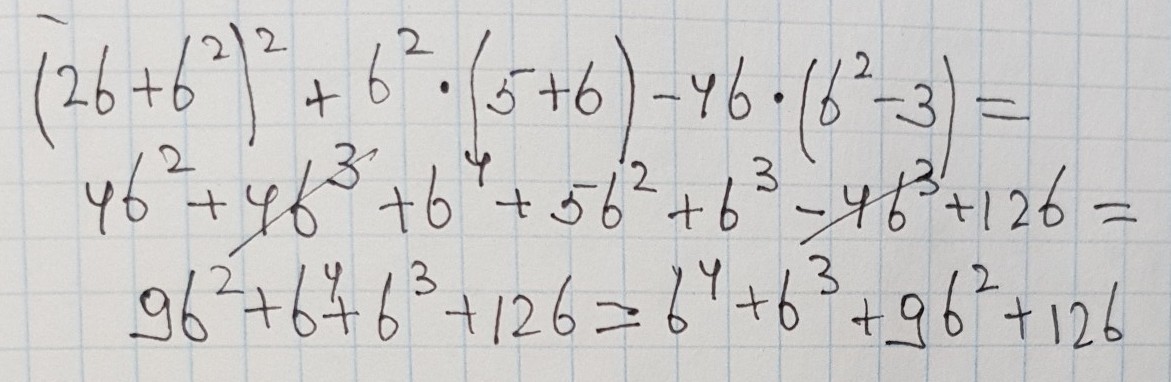 (2b+b²)² + b²·(5+b)-4b·(b²-3)=
4b²+4b³+b⁴+5b²+b³-4b³+12b=
9b²+b⁴+b³+12b=b⁴+b³+9b²+12b